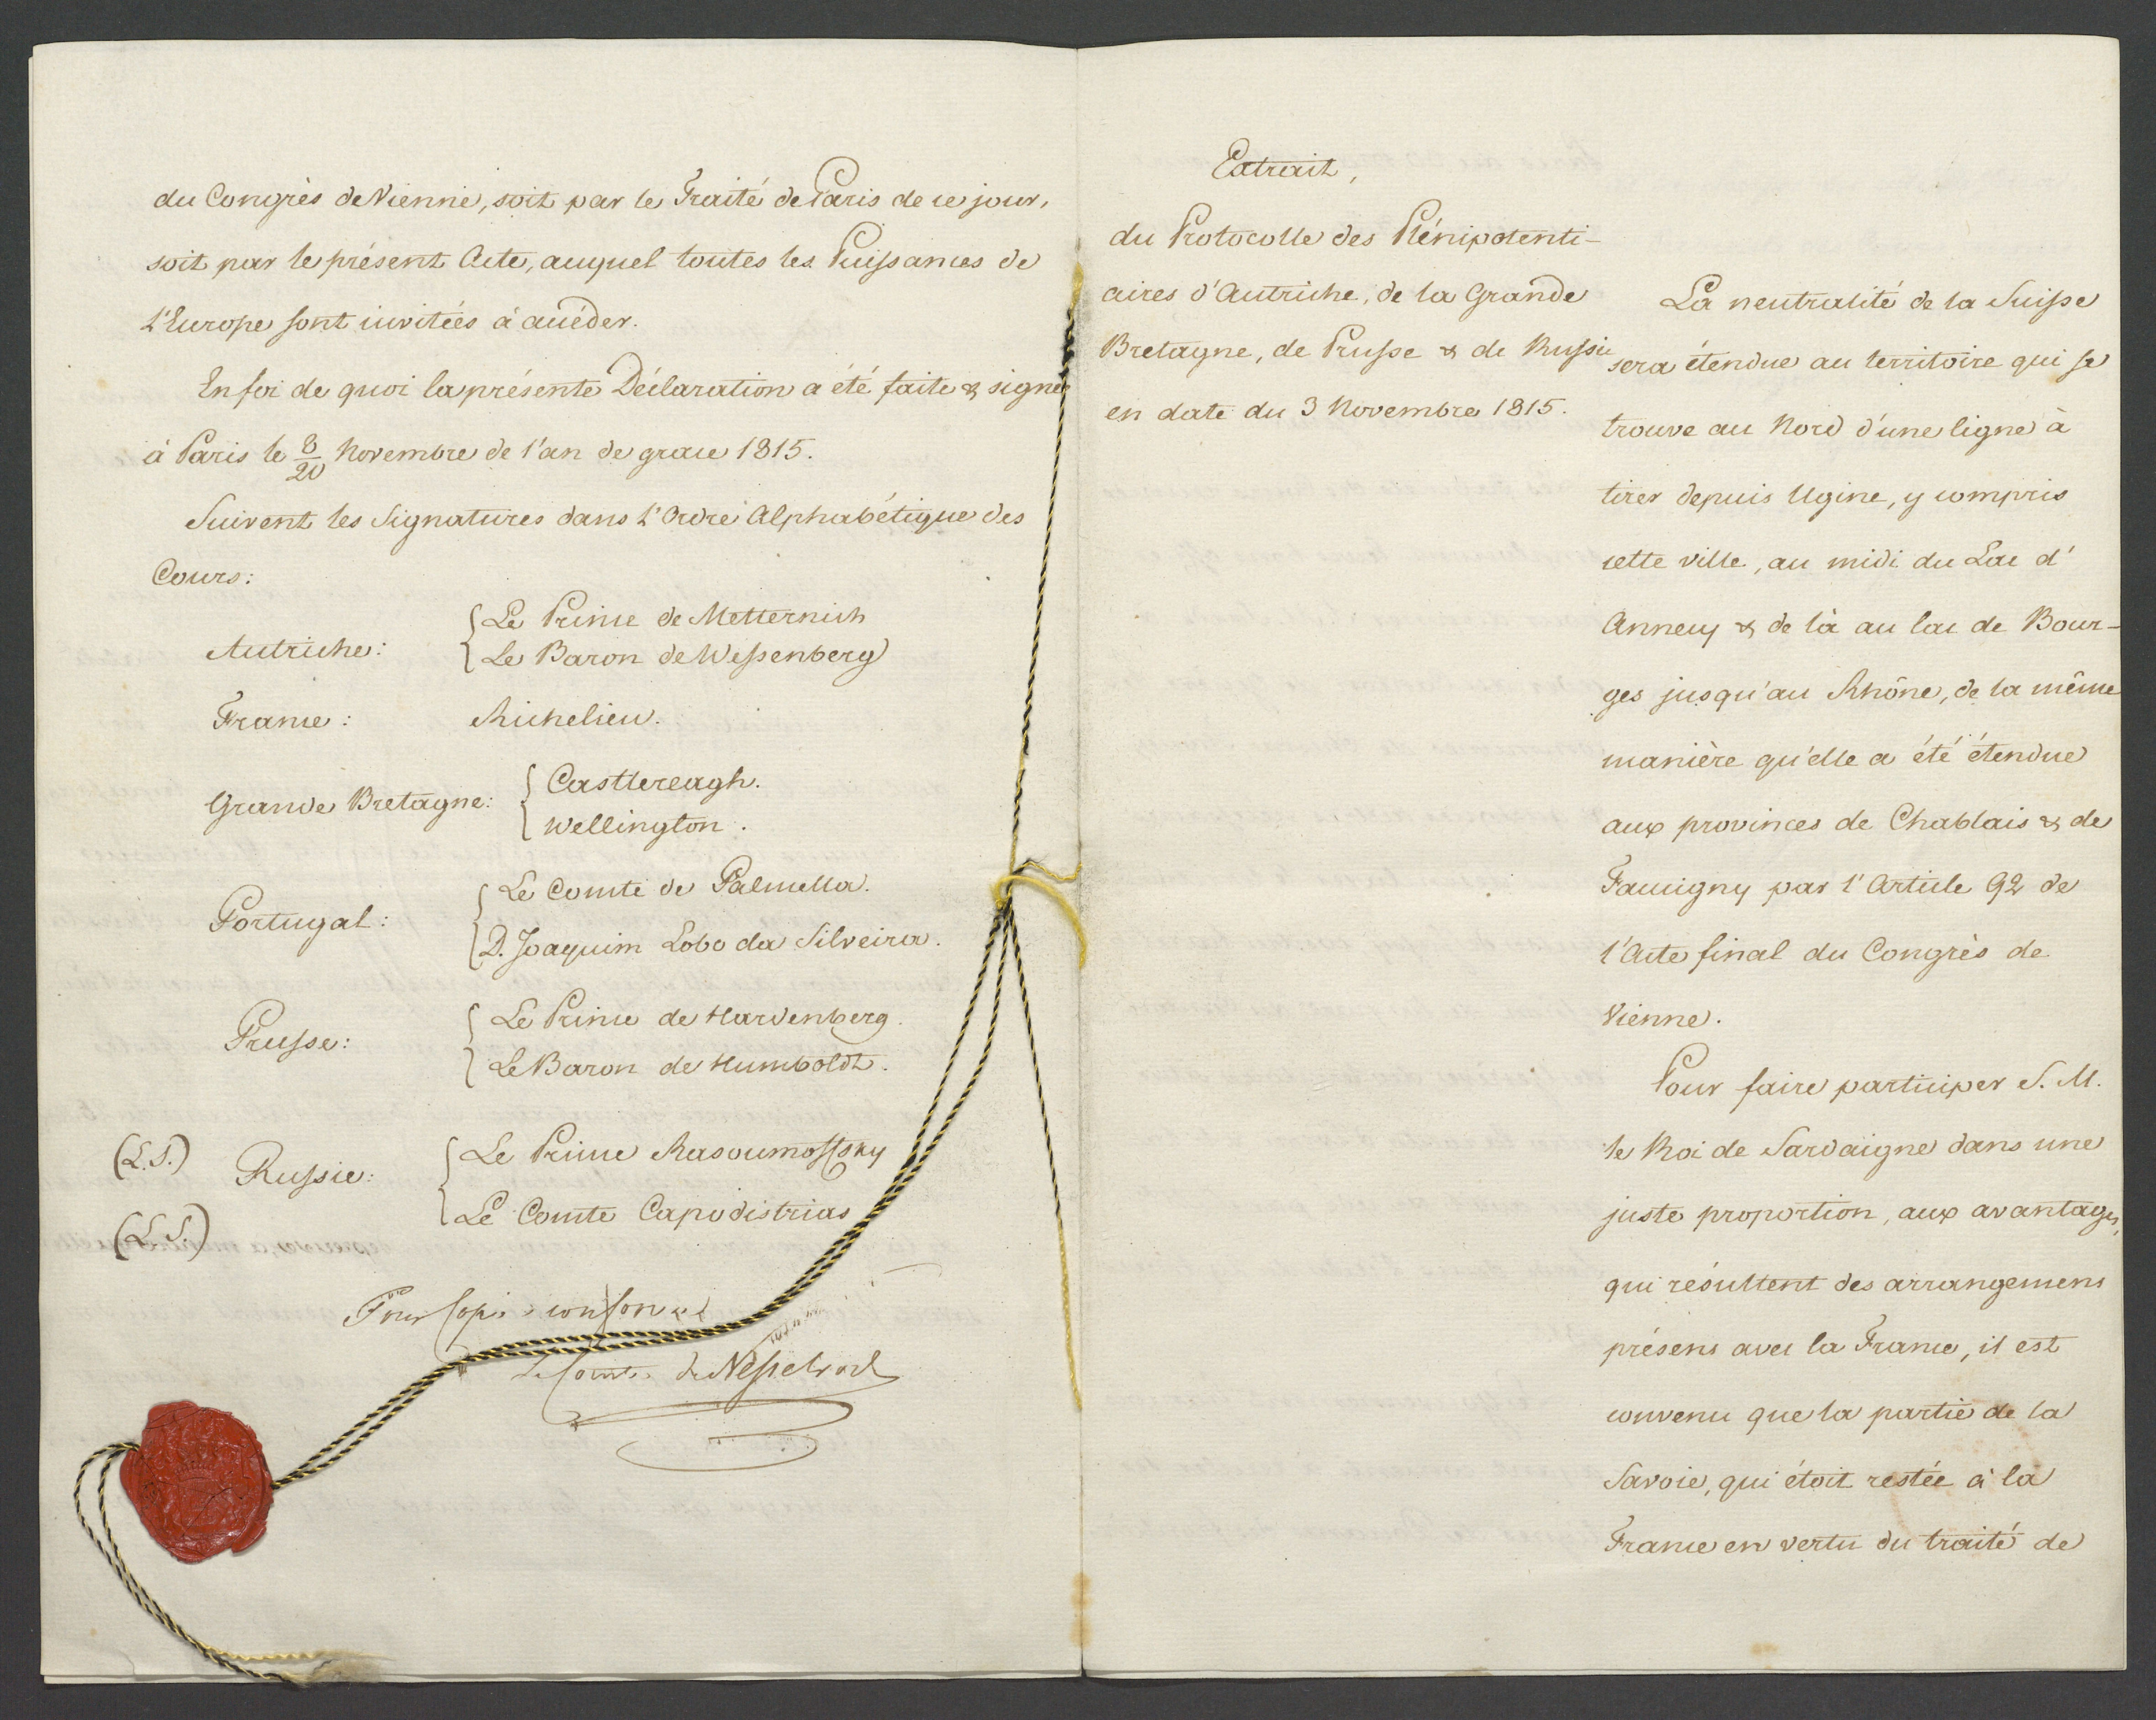 du Congrès de Vienne, soit par le Traité de Paris de ce jour,
soit par le présent Acte, auquel toutes les Puissances de
l'Europe sont invitées à accéder.
En foi de quoi la présente Déclaration a été faite & signée
à Paris le 8/20 Novembre de l'an de grace 1815.
Suivent les Signatures dans l'Ordre Alphabétique des
Cours:
Autriche: { Le Prince de Metternich
Le Baron de Wessenberg
France: Richelieu.
Grande Bretagne: { Castlereagh.
Wellington.
Portugal: { Le Comte de Palmella.
D. Joaquim Lobo da Silveira.
Prusse: { Le Prince de Hardenberg.
Le Baron de Humboldt.
(L.S.) Russie: { Le Prince Rasoumoffsky
(L.S.) Le Comte Capodistrias
Pour Copie conforme
Le Comte de Nesselrode
Extrait,
du Protocolle des Plénipotenti-
aires d'Autriche, de la Grande
Bretagne, de Prusse & de Russie
en date du 3 Novembre 1815.
La neutralité de la Suisse
sera étendue au territoire qui se
trouve au Nord d'une ligne à
tirer depuis Ugine, y compris
cette ville, au midi du Lac d'
Annecy & de là au lac de Bour-
ges jusqu'au Rhône, de la même
manière qu'elle a été étendue
aux provinces de Chablais & de
Faucigny par l'Article 92 de
l'Acte final du Congrès de
Vienne.
Pour faire participer S. M.
le Roi de Sardaigne dans une
juste proportion, aux avantages,
qui résultent des arrangemens
présens avec la France, il est
convenu que la partie de la
Savoie, qui étoit restée à la
France en vertu du traité de